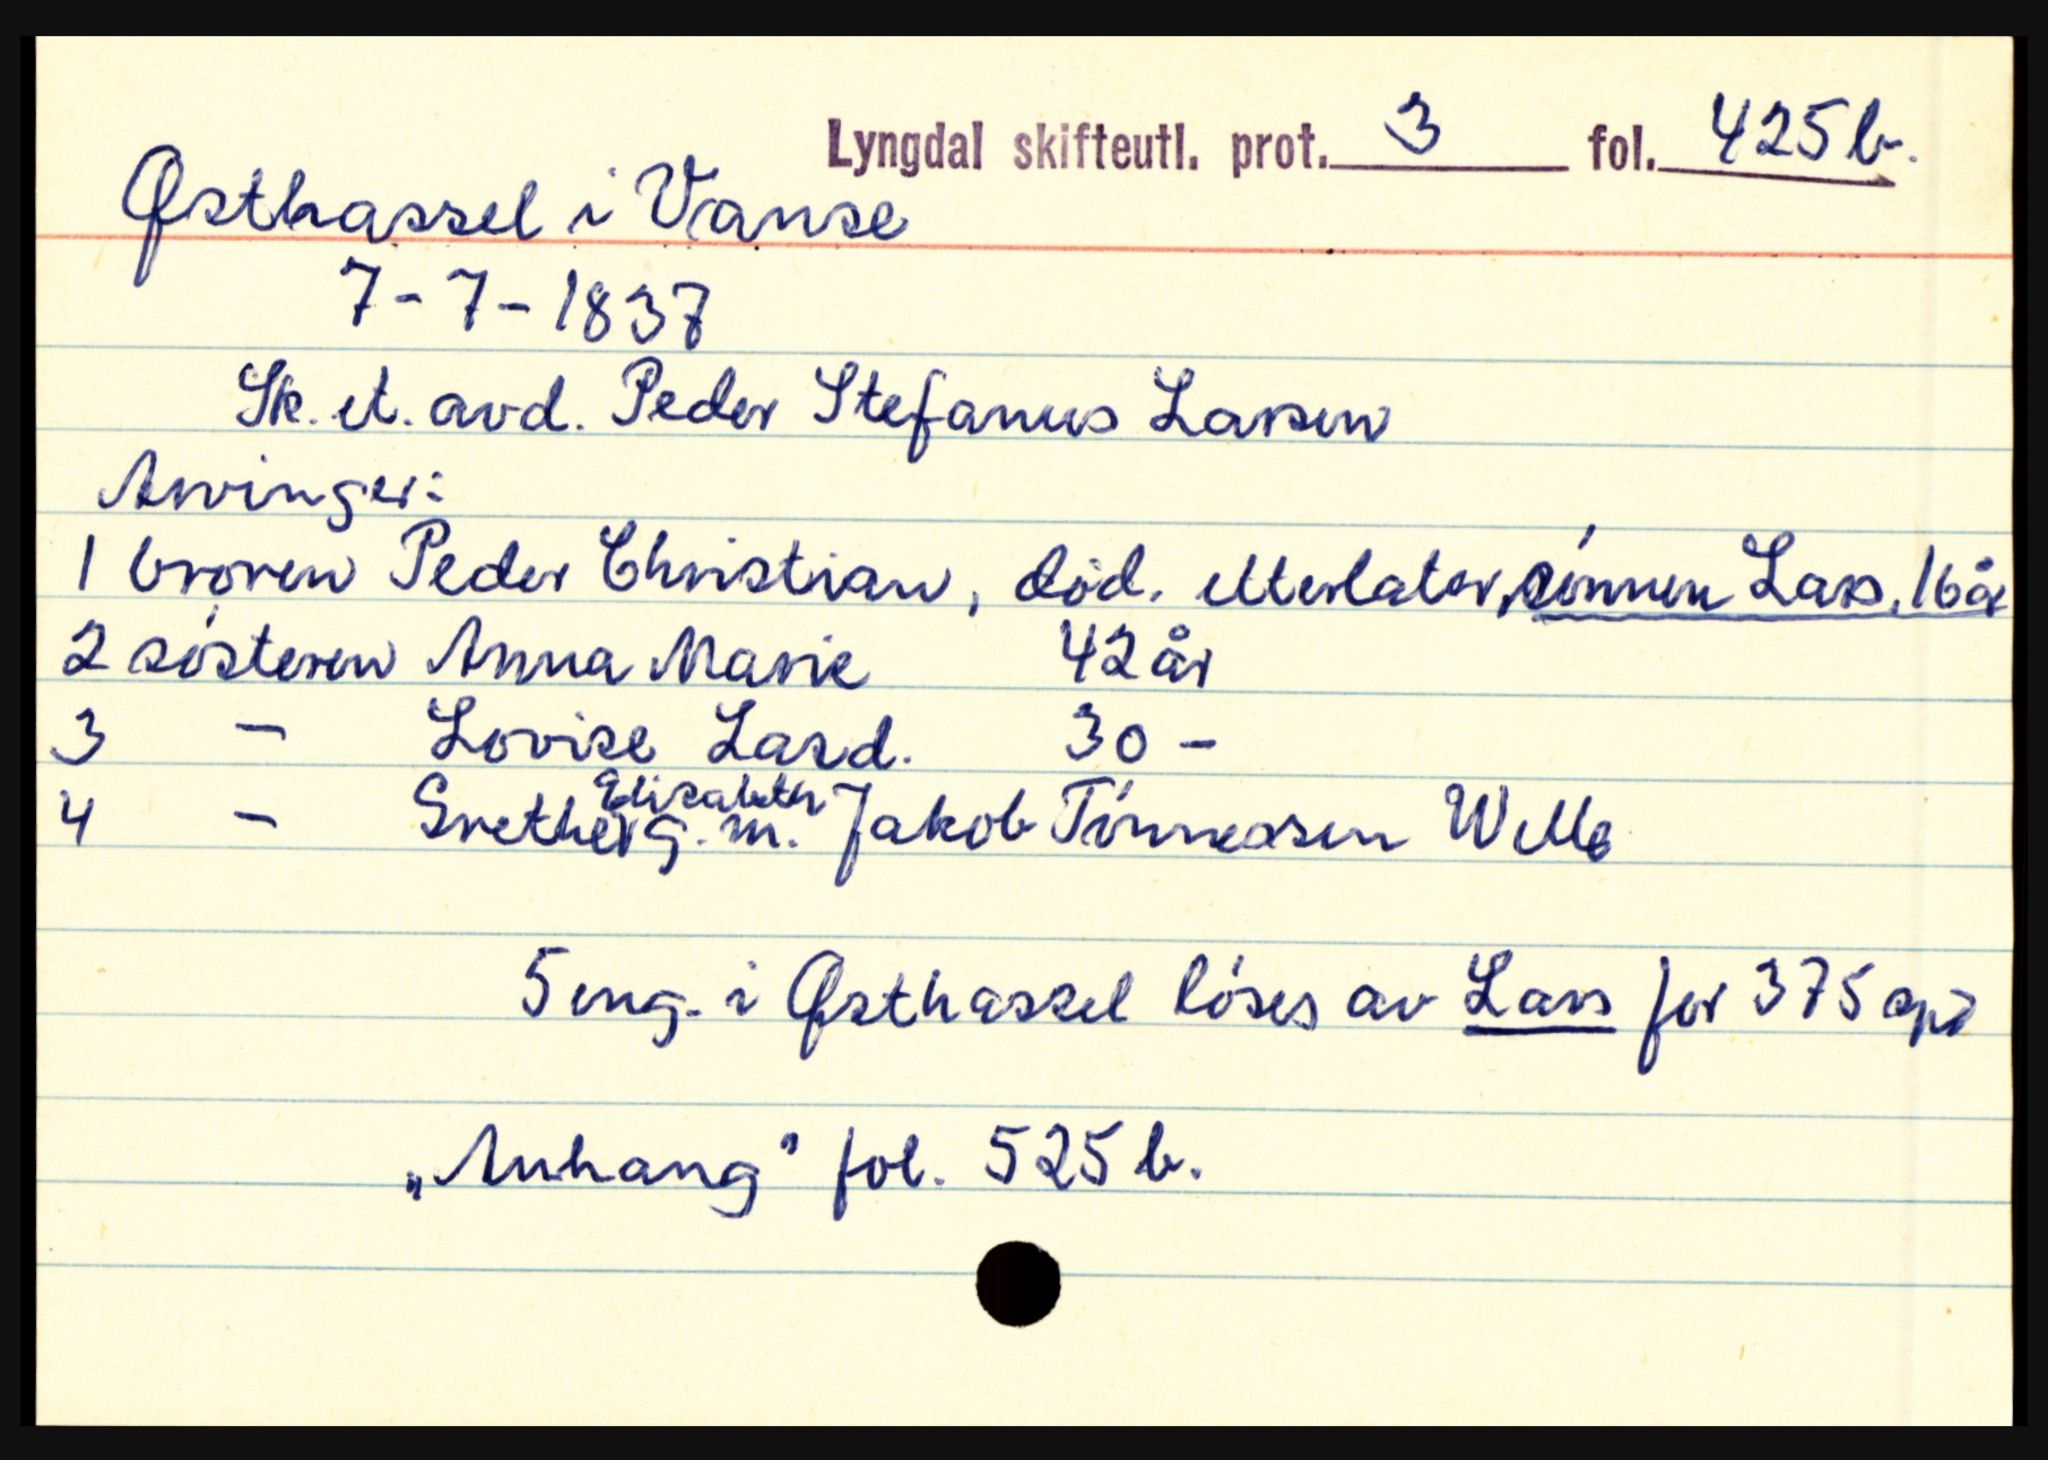 Lyngdal skifteutl. prot. 3 fol. 425 b.
Østhassel i Vanse
7-7-1837
Sk. et. avd. Peder Stefanus Larsen
Arvinger:
1 broren Peder Christian, död. etterlater, sönnen Lars, 16 år
2 søsteren Anna Marie 42 år
3 - Lovise Larsd. 30 -
Elisabeth
4 - Grethe g. m. Jakob Tönnessen
5 eng. i Østhassel löses av Lars for 375 spd
„Anhang” fol. 525 b.